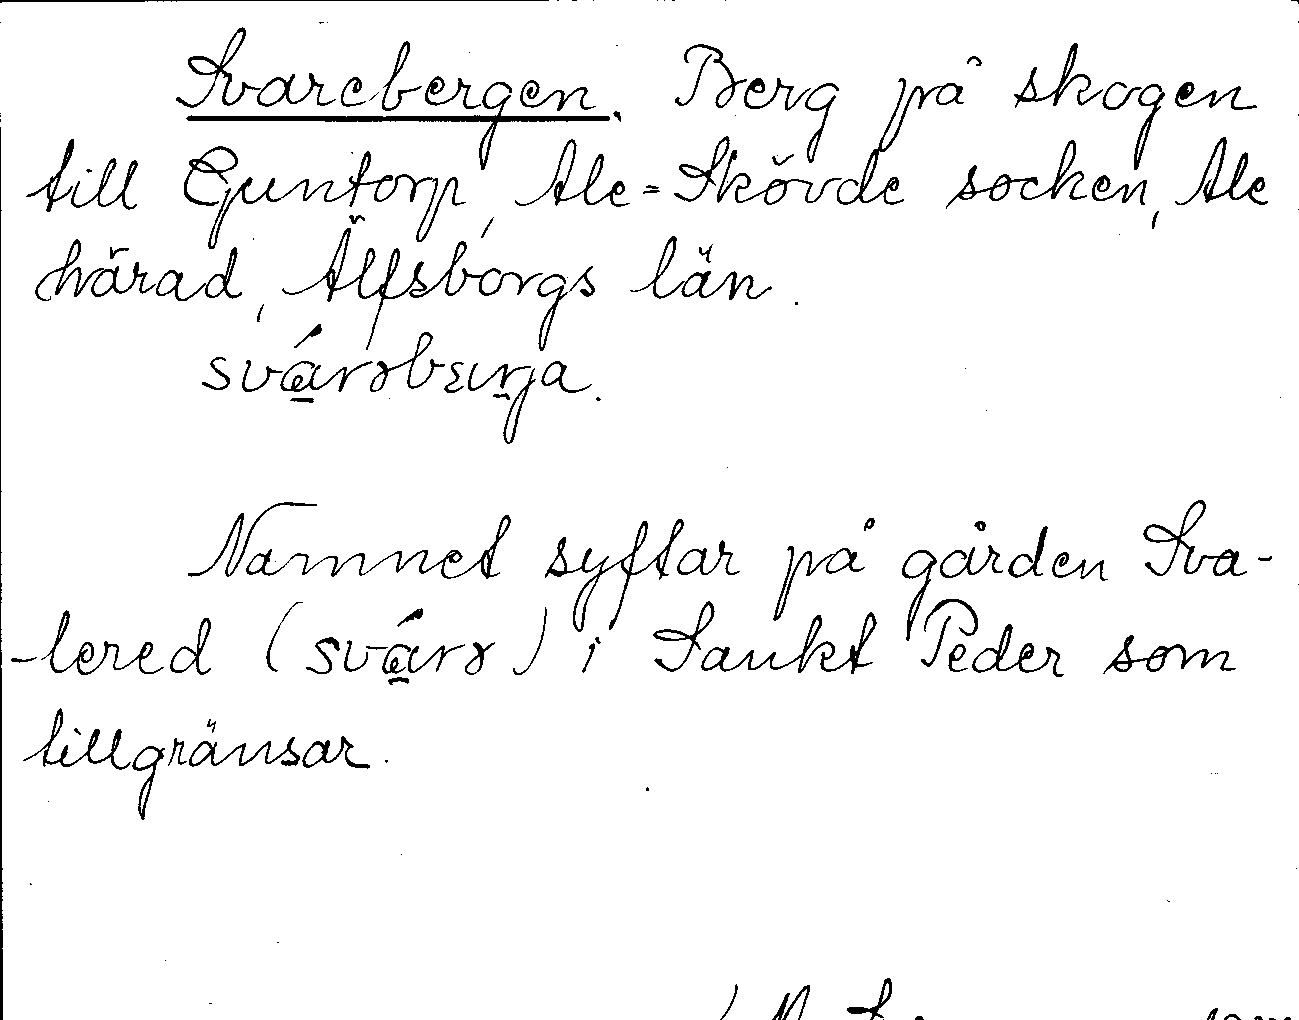 Svarebergen. Berg på skogen
till Guntorp, Ale-Skövde socken, Ale
härad, Älfsborgs län.
svárəbærja.
Namnet syftar på gården Sva-
-lered (svárə) i Sankt Peder som
tillgränsar.